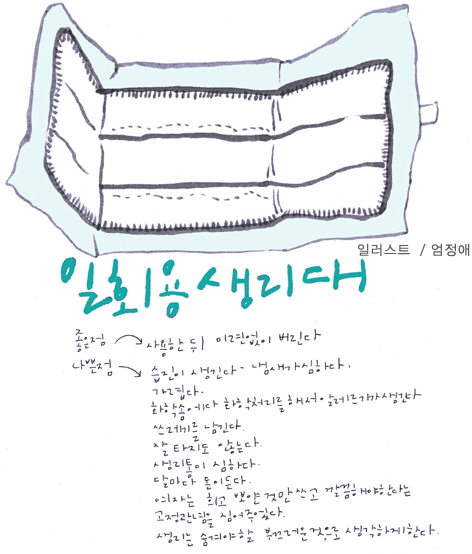 일러스트 / 엄정애
일회용 생리대
좋은점 → 사용한 뒤 미련없이 버린다
나쁜점 → 습진이 생긴다 - 냄새가 심하다.
가렵다.
화학솜에다 화학처리를 해서 알레르기가 생긴다
쓰레기를 남긴다.
잘 타지도 않는다.
생리통이 심하다.
달마다 돈이 든다.
여자는 희고 뽀얀것만 쓰고 깔끔해야한다는
고정관념을 심어주었다.
생리는 숨겨야할 부끄러운것으로 생각하게한다.